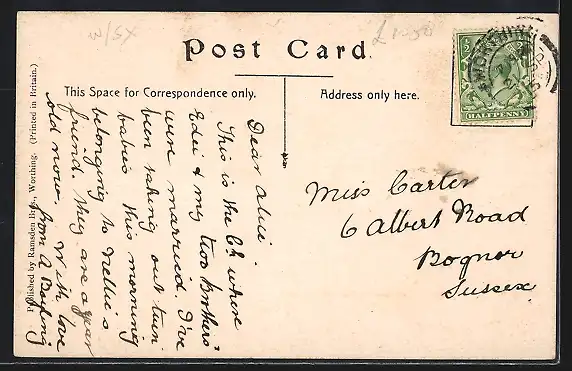 W/SX
£1-50
Post Card.
This Space for Correspondence only.
Address only here.
WORTHING
HALFPENNY
Dear Alice.
This is the Ch where
Edie & my two Brothers
were married. I've
been taking out twin
babies this morning
belonging to Nellie's
friend. They are a year
old now. With love
from A Boxing
Miss Carter
6 Albert Road
Bognor
Sussex
Published by Ramsden Bros., Worthing. (Printed in Britain.)